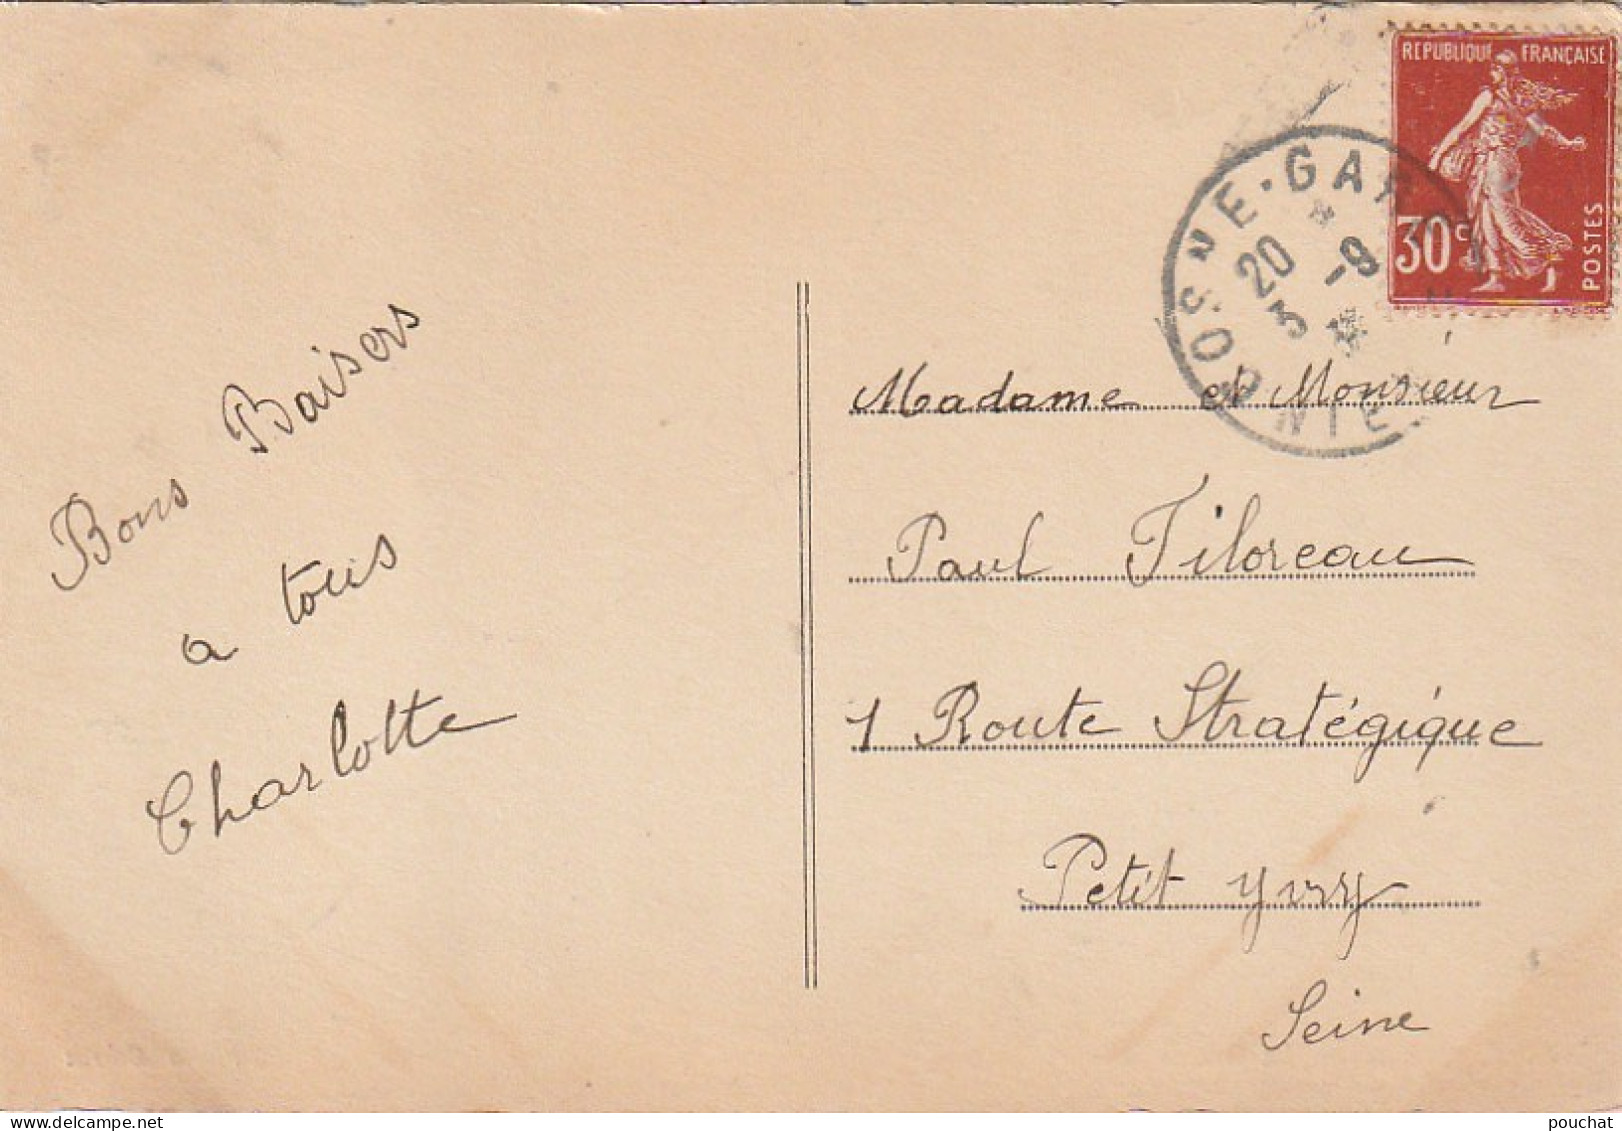 REPUBLIQUE FRANÇAISE
30c
POSTES
COSNE·GARE
20
5 -9
NIE
Bons Baisers
a tous
Charlotte
Madame et Monsieur
Paul Filoreau
1 Route Stratégique
Petit yvry
Seine
pouchat